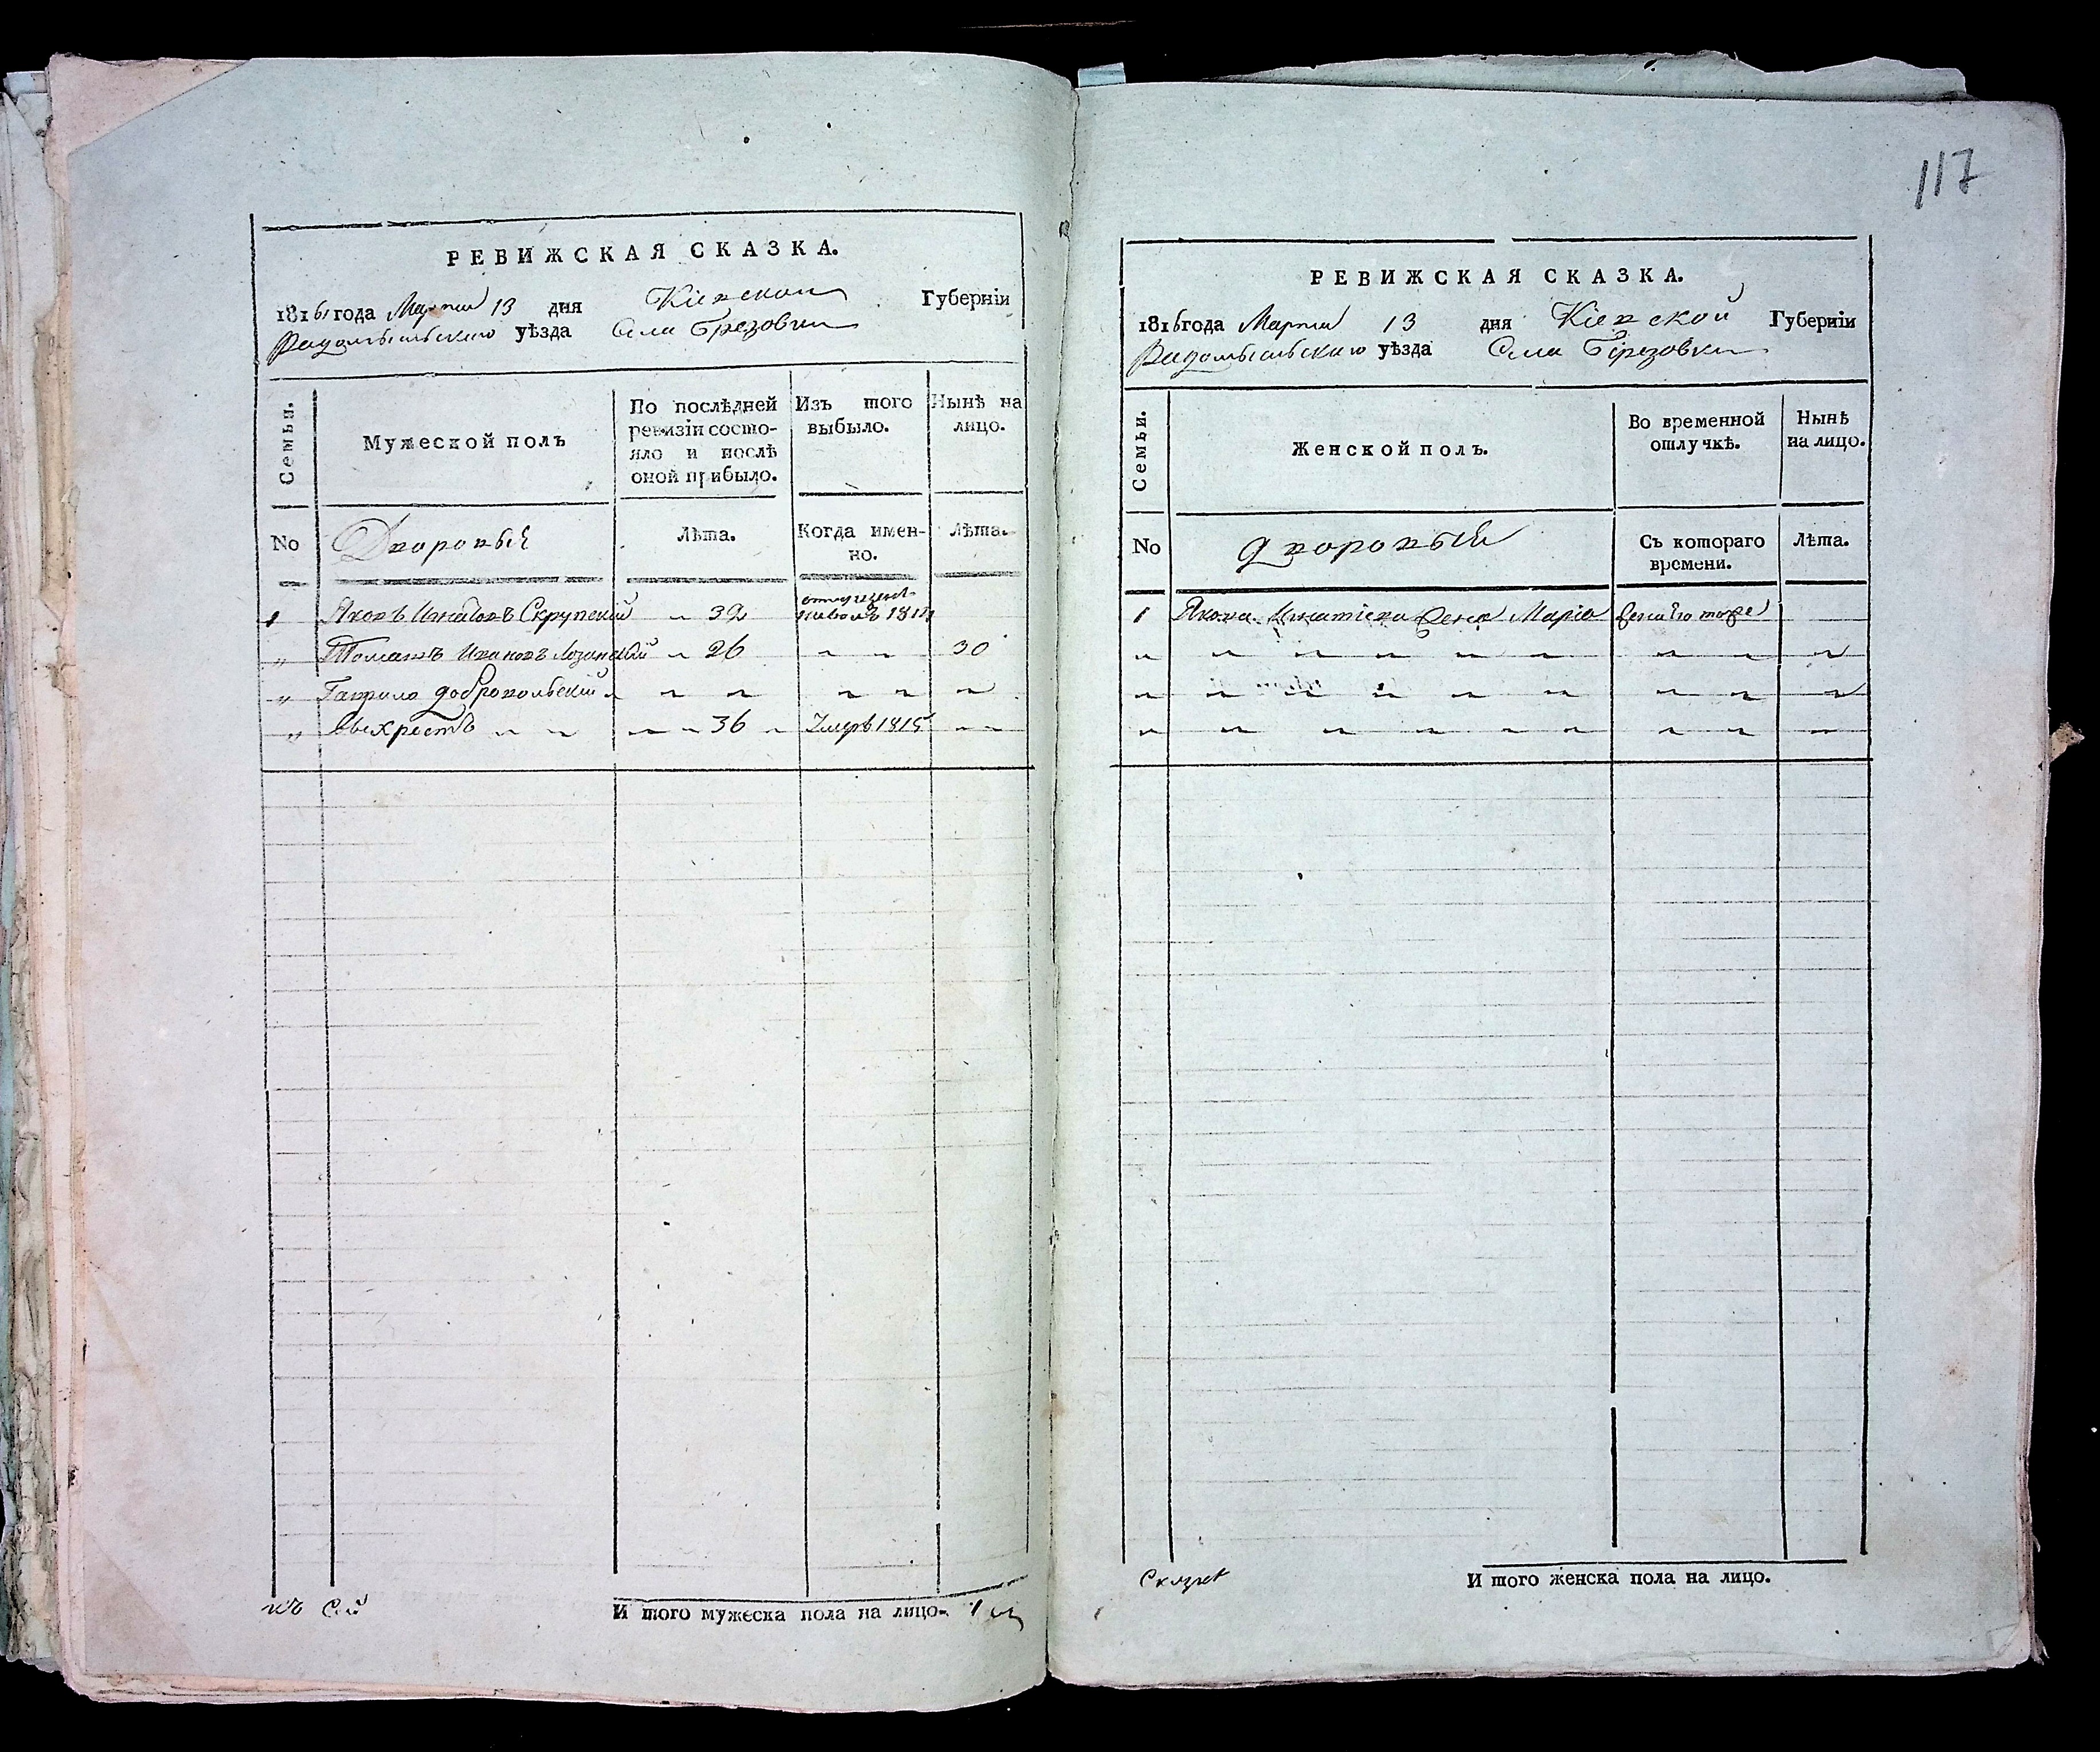 117
РЕВИЖСКАЯ СКАЗКА.
1816 года Марта 13 дня Кіевской Губерніи
Радомысльскаго уѣзда Села Брезовки
Семьи.
Мужеской полъ
По послѣдней ревизіи состо-
яло и послѣ
оной прибыло.
Изъ того
выбыло.
Нынѣ на
лицо.
No
Дворовыя
Лѣта.
Когда имен-
но.
Лѣта.
1 Яковъ Игнатовъ Скрупскій 32
1811
" Томашъ Ивановъ 26 30
" Гаврило Добровольскій
" Выкрестъ 36 Умеръ 1815
къ Сей
И того мужеска пола на лицо. 1
РЕВИЖСКАЯ СКАЗКА.
1816 года Марта 13 дня Кіевской Губерніи
Радомысльскаго уѣзда Села Брезовки
Семьи.
Женской полъ.
Во временной
отлучкѣ.
Нынѣ
на лицо.
No
Дворовыя
Съ котораго
времени.
Лѣта.
1 Якова Игнатіева жена Марія
Сказке
И того женска пола на лицо.